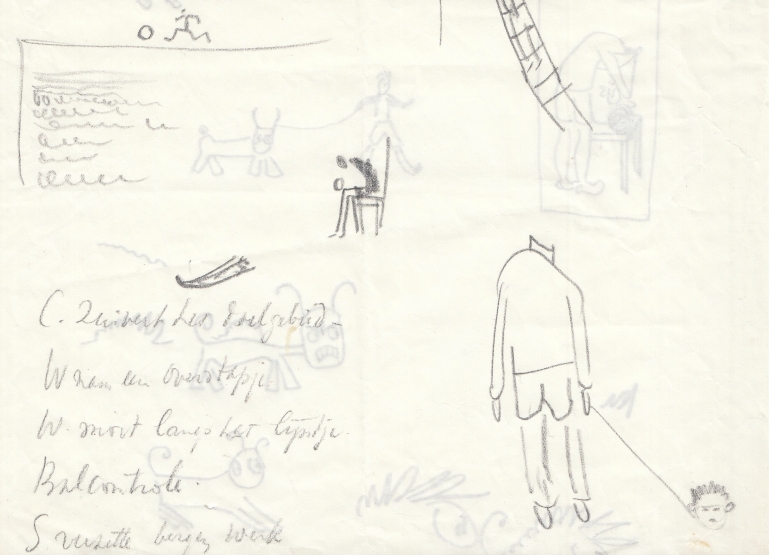 C. Zuivert het doelgebied -
W nam een overstapje
W. moest langs het lijntje.
Balcontrole.
S verzette bergen werk